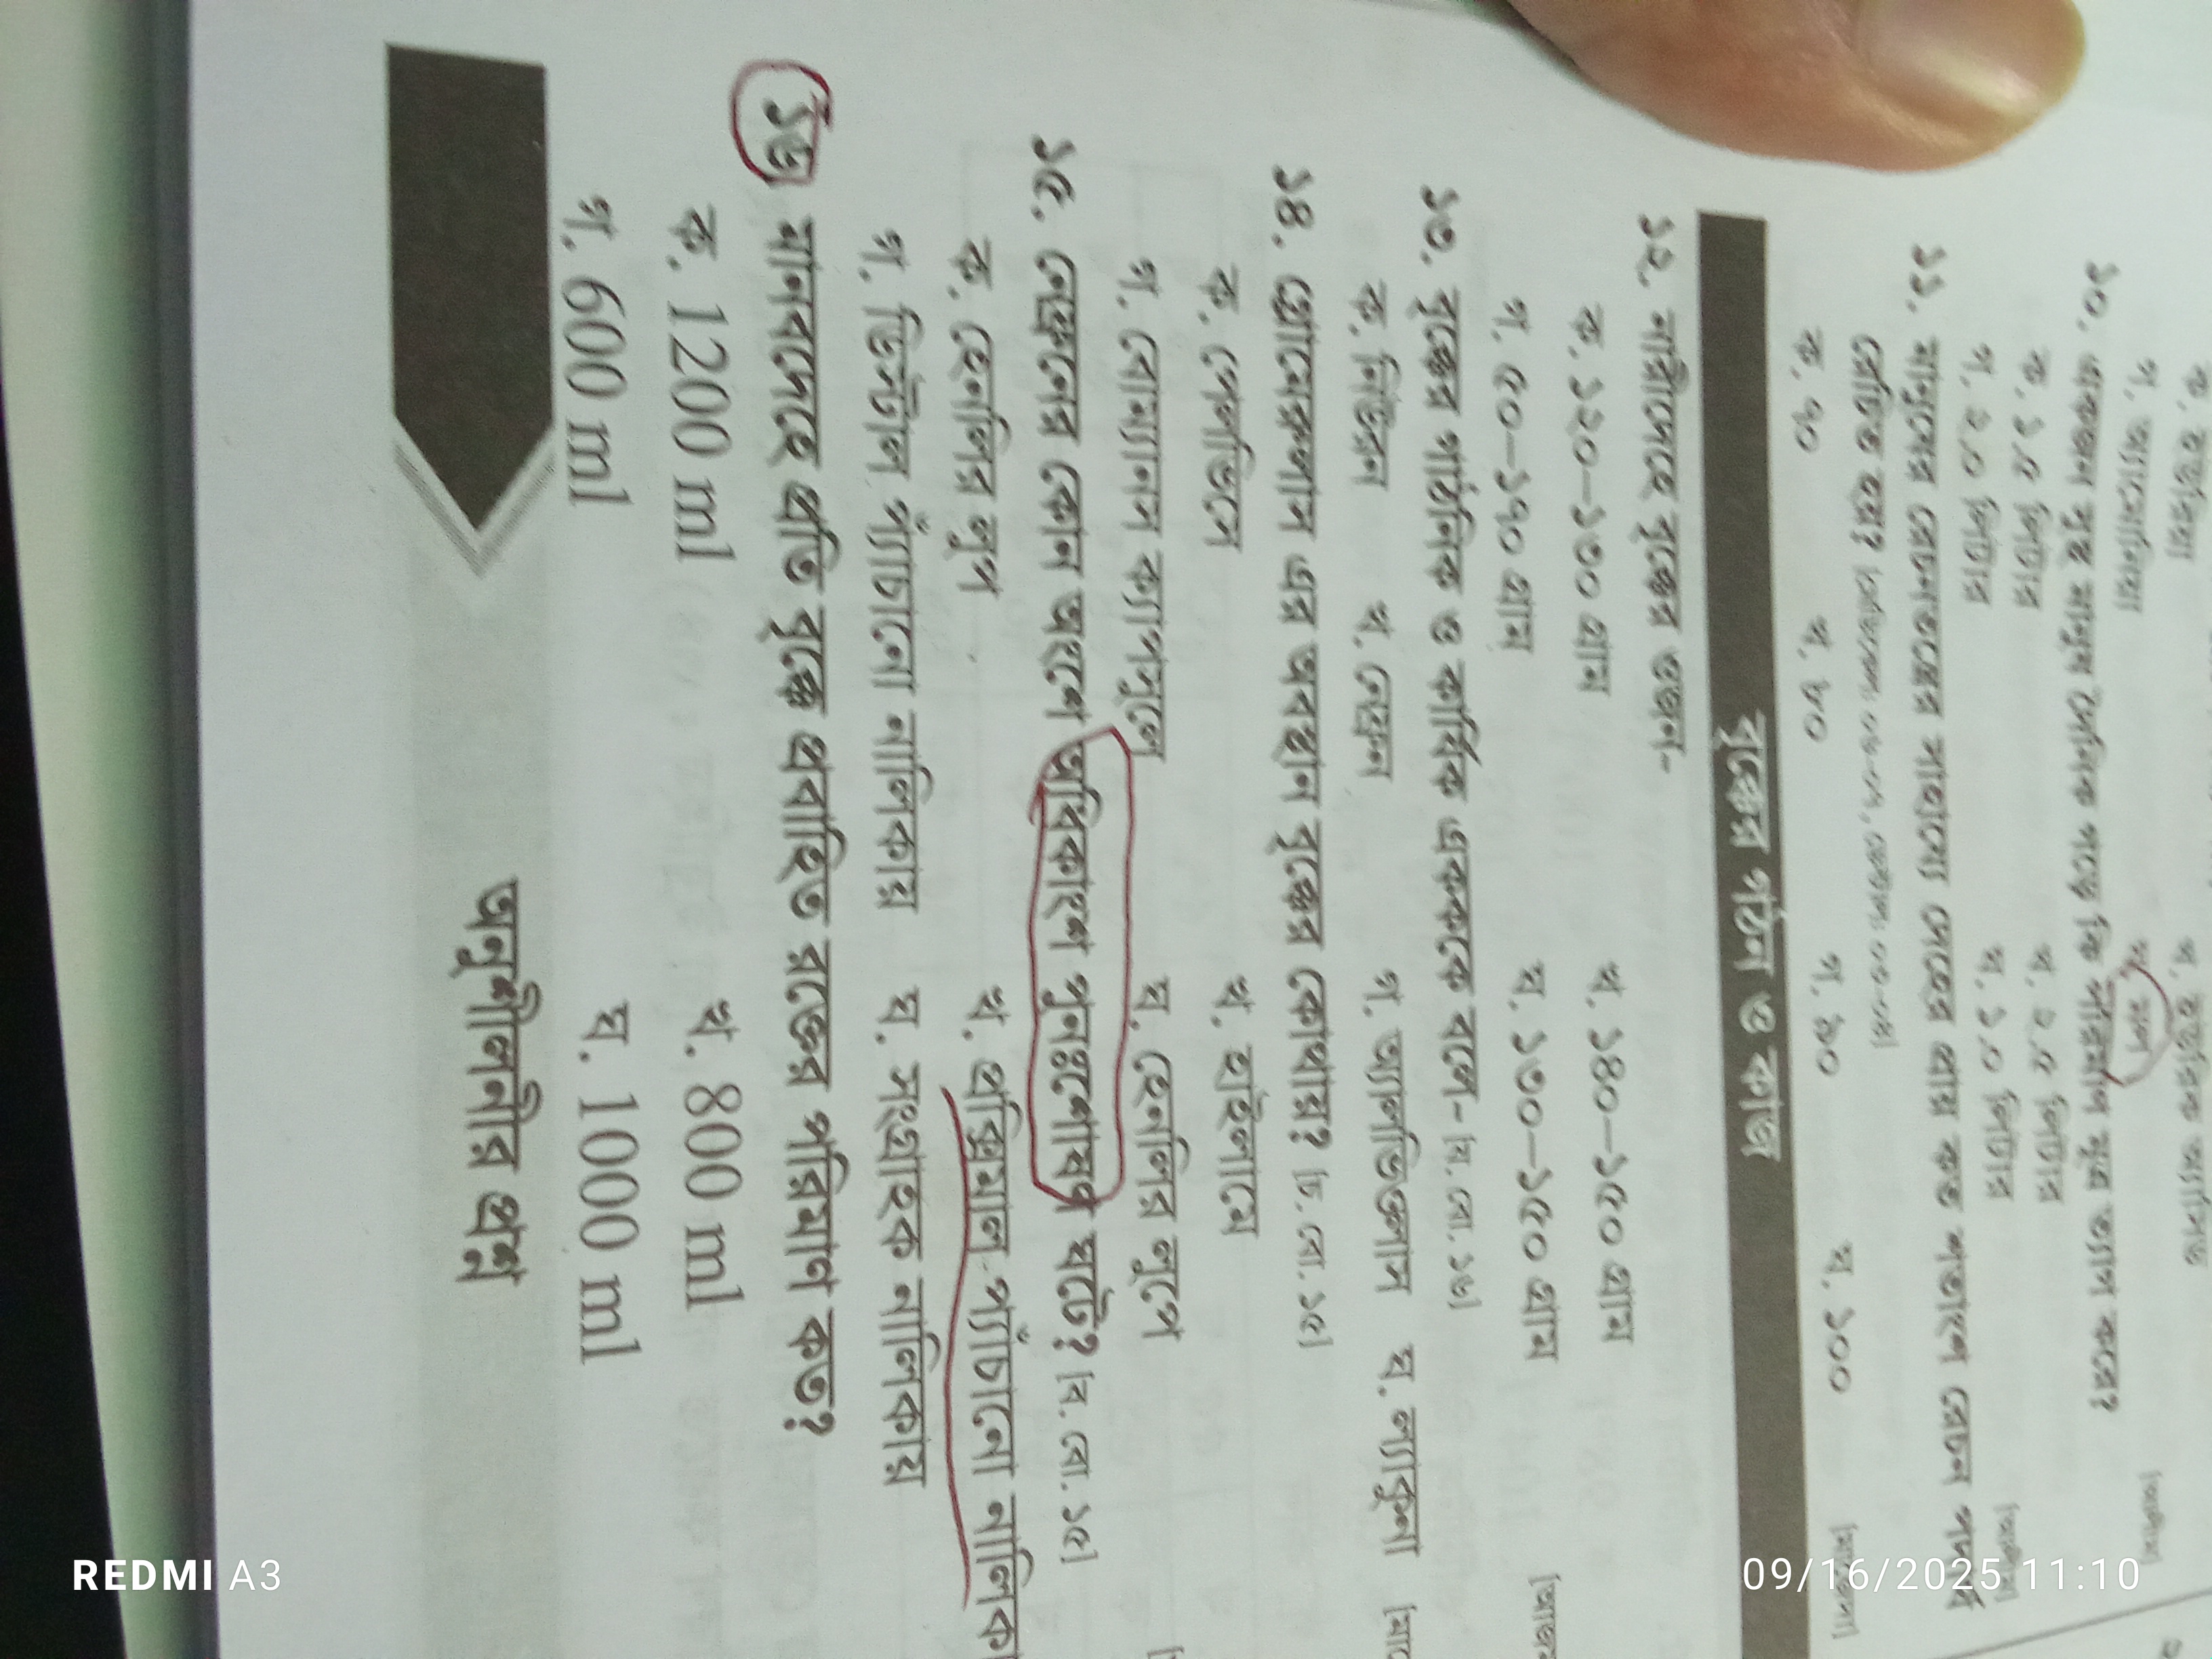 ঘ. জল
১০. একজন সুস্থ মানুষ দৈনিক গড়ে কি পরিমাণ মূত্র ত্যাগ করে?
ক. ১.৫ লিটার খ. ২.৫ লিটার
গ. ২.০ লিটার ঘ. ১.০ লিটার
১১. মানুষের রেচনতন্ত্রের মাধ্যমে দেহের প্রায় কত শতাংশ রেচন পদার্থ
রেচিত হয়?
ক. ৭০ খ. ৮০ গ. ৯০ ঘ. ১০০
বৃক্কের গঠন ও কাজ
১২. নারীদেহে বৃক্কের ওজন-
ক. ১২০-১৩০ গ্রাম খ. ১৪০-১৫০ গ্রাম
গ. ৫০-১৭০ গ্রাম ঘ. ১৩০-১৫০ গ্রাম
১৩. বৃক্কের গাঠনিক ও কার্যিক একককে বলে- [য. বো. ১৬]
ক. নিউরন খ. নেফ্রন গ. অ্যালভিওলাস ঘ. ল্যাকুনা
১৪. গ্লোমেরুলাস এর অবস্থান বৃক্কের কোথায়? [চ. বো. ১৫]
ক. পেলভিসে খ. হাইলামে
গ. বোম্যানস ক্যাপসুলে ঘ. হেনলির লুপে
১৫. নেফ্রনের কোন অংশে অধিকাংশ পুনঃশোষণ ঘটে? [ব. বো. ১৫]
ক. হেনলির লুপ খ. প্রক্সিমাল প্যাঁচানো নালিকা
গ. ডিস্টাল প্যাঁচানো নালিকায় ঘ. সংগ্রাহক নালিকায়
১৬ মানবদেহে প্রতি বৃক্কে প্রবাহিত রক্তের পরিমাণ কত?
ক. 1200 ml খ. 800 ml
গ. 600 ml ঘ. 1000 ml
অনুশীলনীর প্রশ্ন
REDMI A3
09/16/2025 11:10